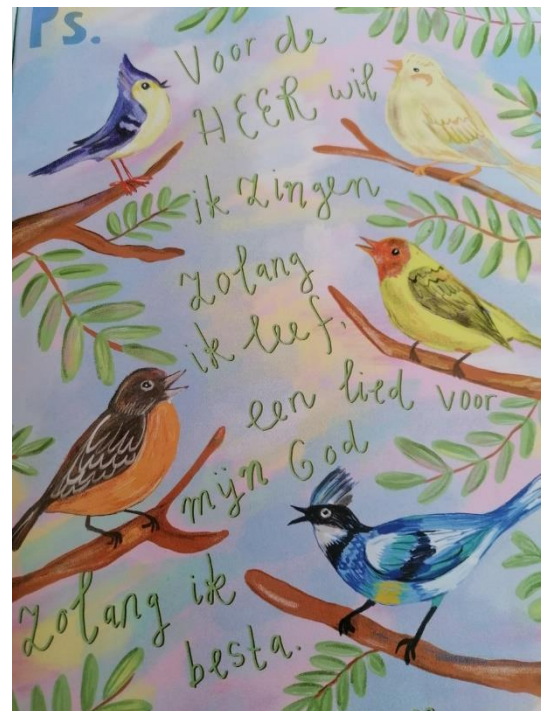 Ps.
Voor de
HEER wil
ik zingen
zolang
ik leef,
een lied voor
mijn God
zolang ik
besta.